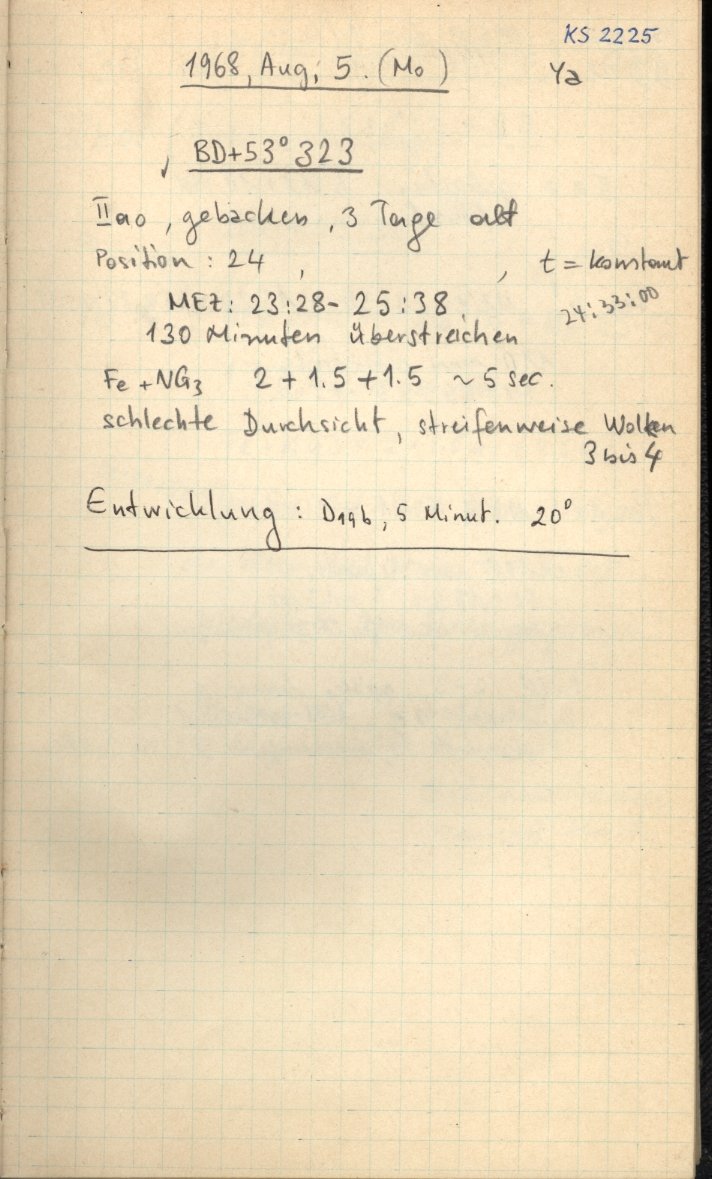 KS 2225
1968, Aug, 5. (Mo) Ya
, BD+53° 323
IIao, gebacken, 3 Tage alt
Position : 24 , , t = konstant
MEZ: 23:28 - 25:38, 24:33:00
130 Minuten überstreichen
Fe + NG3 2 + 1.5 + 1.5 ~ 5 sec.
schlechte Durchsicht, streifenweise Wolken
3 bis 4
Entwicklung : D19b, 5 Minut. 20°